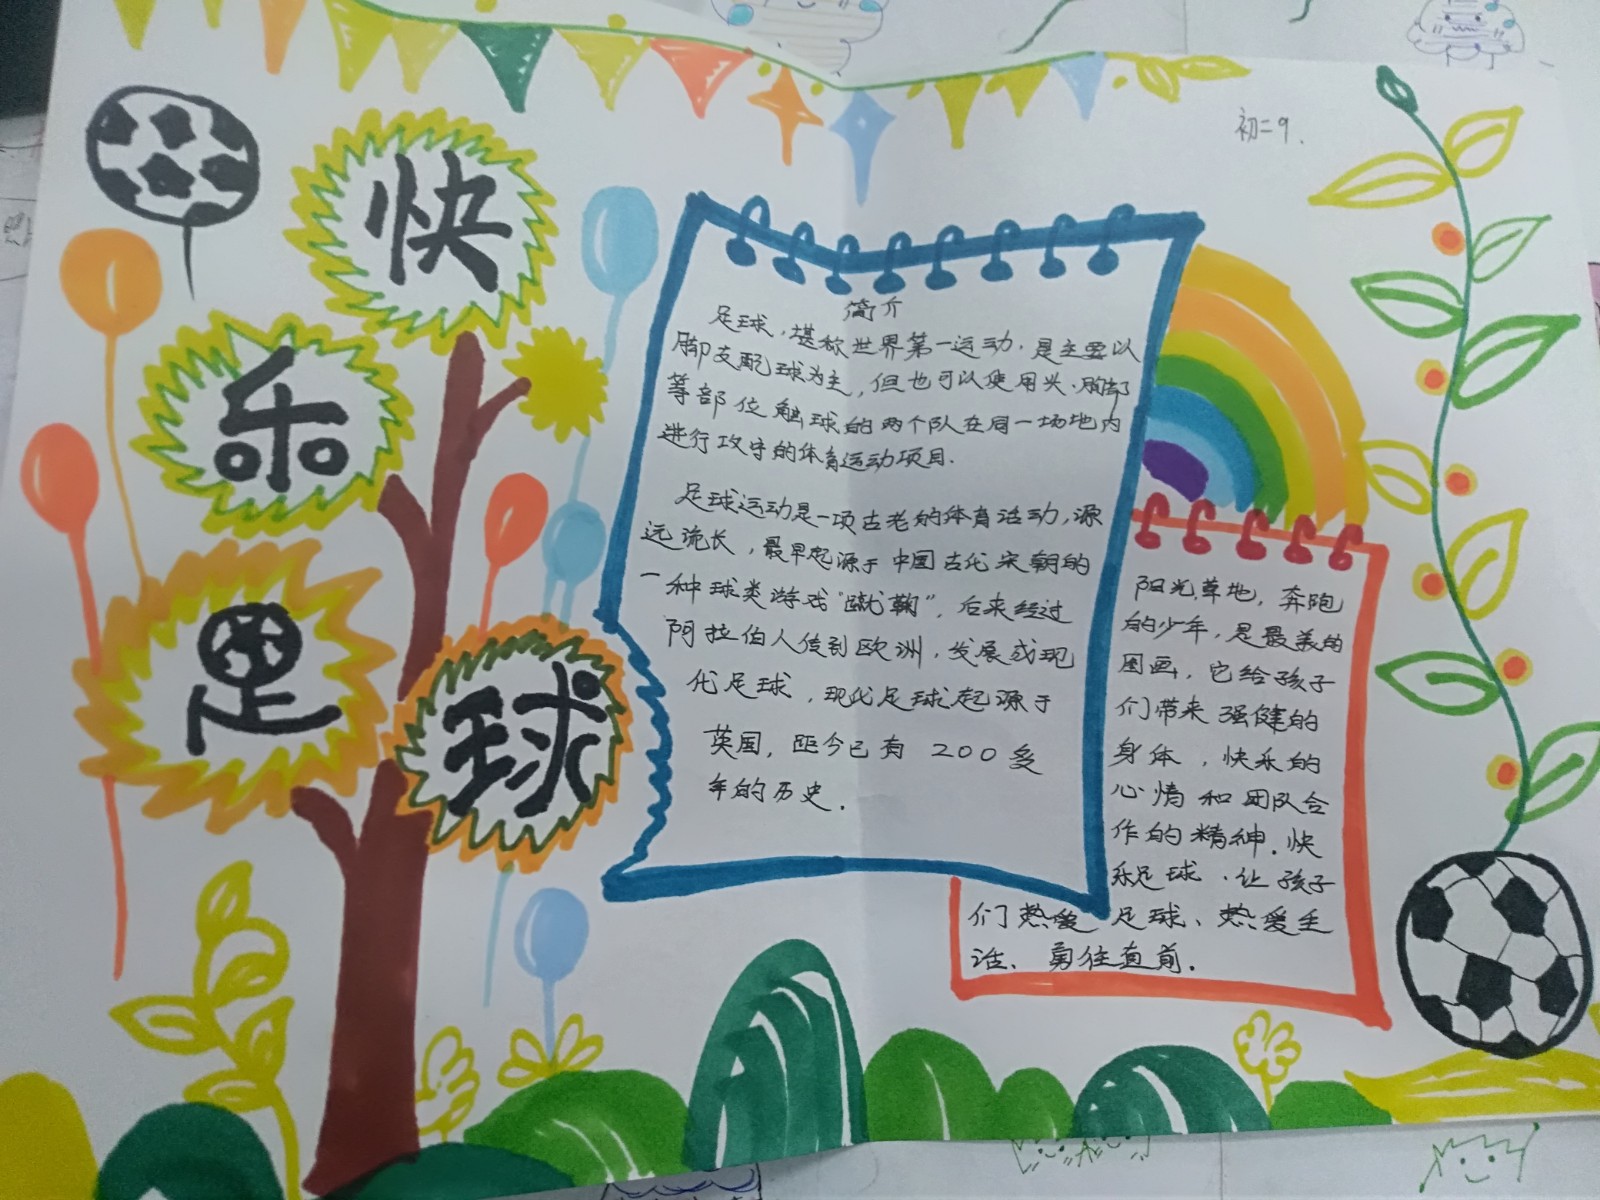 初二9.
快
乐
足
球
简介
足球,堪称世界第一运动,是主要以
脚支配球为主,但也可以使用头、胸部
等部位触球的两个队在同一场地内
进行攻守的体育运动项目.
足球运动是一项古老的体育活动,源
远流长,最早起源于中国古代宋朝的
一种球类游戏“蹴鞠”,后来经过
阿拉伯人传到欧洲,发展成现
代足球,现代足球起源于
英国,距今已有 200多
年的历史.
阳光草地,奔跑
的少年,是最美的
图画,它给孩子
们带来强健的
身体,快乐的
心情和团队合
作的精神.快
乐足球,让孩子
们热爱足球、热爱生
活、勇往直前.